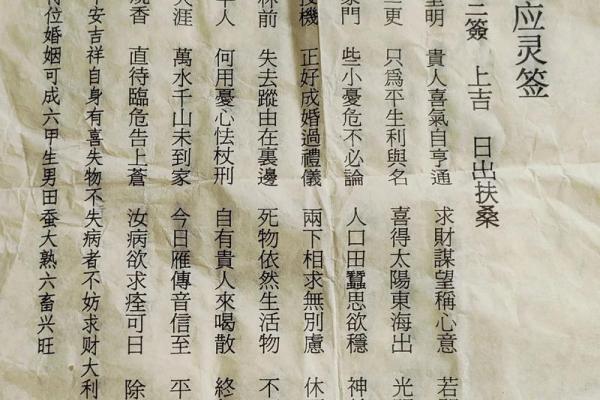 应灵签
簽 上吉 日出扶桑
明 貴人喜氣自亨通 求財謀望稱心意 若
更 只爲平生利與名 喜得太陽東海出 光
門 些小憂危不必論 人口田蠶思欲穩 神
機 正好成婚過禮儀 兩下相求無別慮 休
前 失去蹤由在裏邊 死物依然生活物 不
人 何用憂心怯杖刑 自有貴人來喝散 終
涯 萬水千山未到家 今日雁傳音信至 平
香 直待臨危告上蒼 汝病欲求痊可日 除
安吉祥自身有喜失物不失病者不妨求财大利
位婚姻可成六甲生男田蚕大熟六畜兴旺